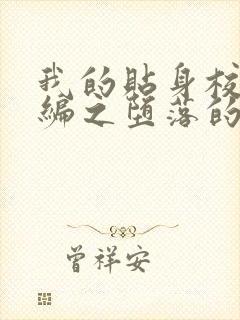 我的貼身校
編之墮落的
曾祥安